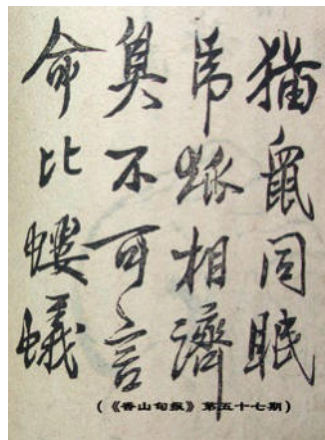 猫鼠同眠
虎狐相濟
臭不可言
命比螻蟻
(《香山旬报》第五十七期)